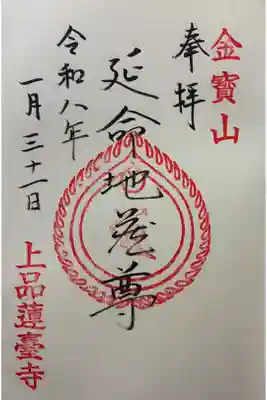 金寳山
奉拝
延命地蔵尊
令和八年
一月三十一日
上品蓮臺寺